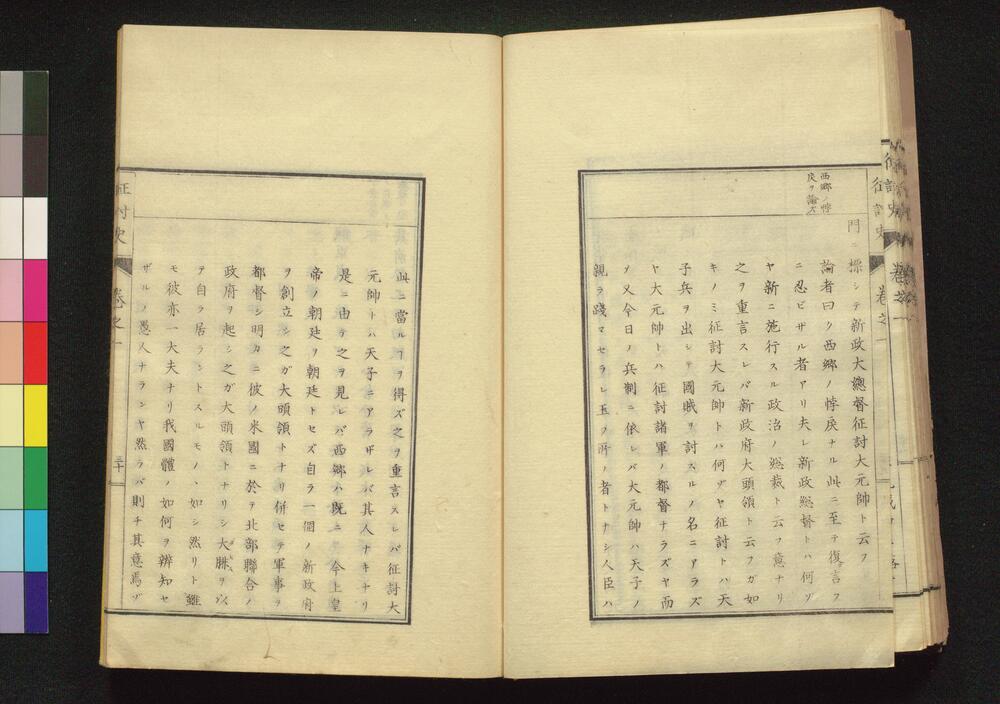 征討史
卷之一
西郷ノ悖
戾ヲ論ズ
門ニ標シテ新政大總督征討大元帥ト云フ
論者曰ク西郷ノ悖戾ナル此ニ至テ復言フ
ニ忍ビザル者アリ夫レ新政総督トハ何ゾ
ヤ新ニ施行スル政治ノ総裁ト云フ意ナリ
之ヲ重言スレバ新政府大頭領ト云フガ如
キノミ征討大元帥トハ何ゾヤ征討トハ天
子兵ヲ出シテ國賊ヲ討スルノ名ニアラズ
ヤ大元帥トハ征討諸軍ノ都督ナラズヤ而
ソ又今日ノ兵制ニ依レバ大元帥ハ天子ノ
親ラ踐マセラレ玉フ所ノ者トナシ人臣ハ
此ニ當ルヿヲ得ズ之ヲ重言スレバ征討大
元帥トハ天子ニアラザレバ其人ナキナリ
是ニ由テ之ヲ見レバ西郷ハ既ニ今上皇
帝ノ朝廷ヲ朝廷トセズ自ラ一個ノ新政府
ヲ創立シ之ガ大頭領トナリ併セテ軍事ヲ
都督シ明カニ彼ノ米國ニ於テ北部聯合ノ
政府ヲ起シ之ガ大頭領トナリシ大勝ヲ以
テ自ラ居ラントスルモノヽ如シ然リト雖
モ彼亦一大夫ナリ我國體ノ如何ヲ辨知セ
ザルノ愚人ナランヤ然ラバ則チ其意焉ゾ
征討史
卷之一
三十